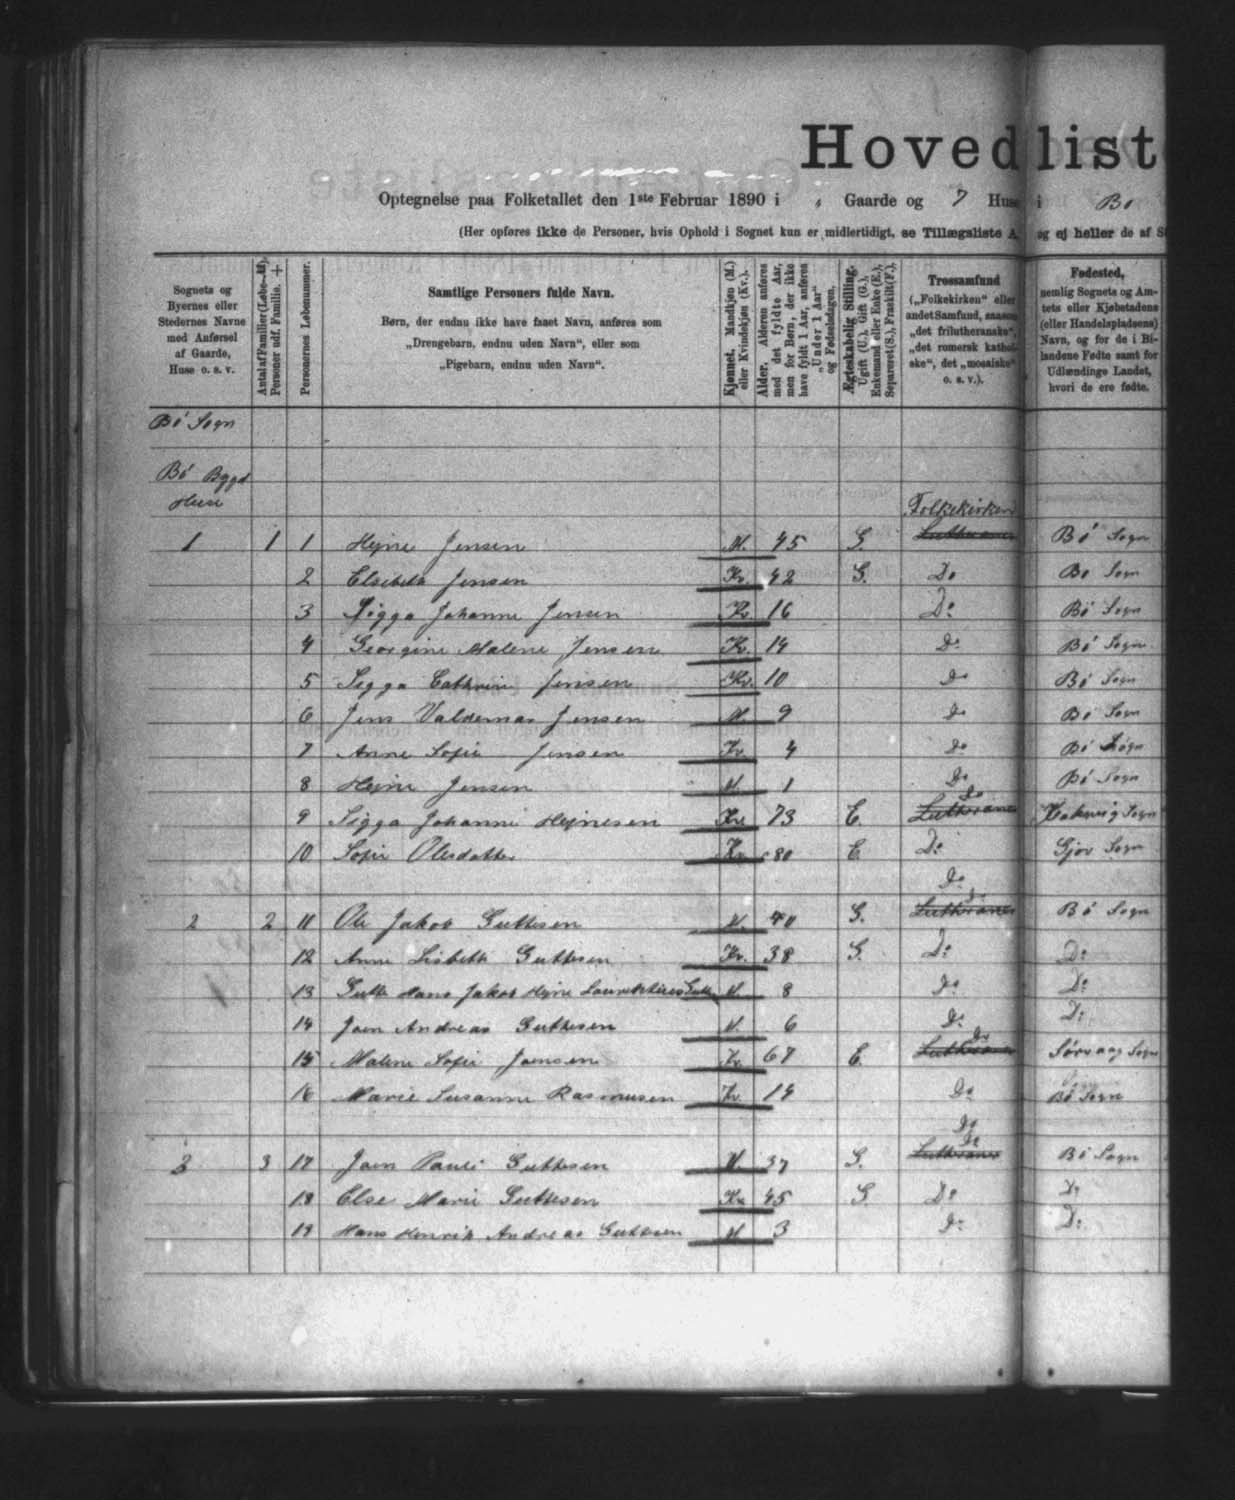 Hovedlist
Optegnelse paa Folketallet den 1ste Februar 1890 i „ Gaarde og 7 Huse i Bø
(Her opføres ikke de Personer, hvis Ophold i Sognet kun er midlertidigt, se Tillægsliste A, og ej heller de af S
Sognets og Byernes eller Stedernes Navne med Anførsel af Gaarde, Huse o. s. v.
Antal af Familier (Løbe-№). Personer udf. Familie. +
Personernes Løbenummer.
Samtlige Personers fulde Navn.
Børn, der endnu ikke have faaet Navn, anføres som
„Drengebarn, endnu uden Navn“, eller som
„Pigebarn, endnu uden Navn“.
Kjønnet. Mandkjøn (M.) eller Kvindekjøn (Kv.).
Alder. Alderen anføres med det fyldte Aar, men for Børn, der ikke have fyldt 1 Aar, anføres „Under 1 Aar“ og Fødselsdagen.
Ægteskabelig Stilling. Ugift (U.), Gift (G.), Enkemand eller Enke (E.), Separeret (S.), Fraskilt (F.).
Trossamfund („Folkekirken“ eller andet Samfund, saasom „det frilutheranske“, „det romersk katholske“, det „mosaiske“ o. s. v.).
Fødested, nemlig Sognets og Amtets eller Kjøbstadens (eller Handelspladsens) Navn, og for de i Bilandene Fødte samt for Udlændinge Landet, hvori de ere fødte.
Bø Sogn
Bø Bygd
Huse
Folkekirken
1 1 1 Hejne Jensen M. 45 G. Lutheraner Bø Sogn
2 Elsebeth Jensen Kv. 42 G. Do Bø Sogn
3 Sigga Johanne Jensen Kv 16 Do Bø Sogn
4 Georgine Malene Jensen Kv. 14 Do Bø Sogn
5 Sigga Cathrine Jensen Kv. 10 Do Bø Sogn
6 Jens Valdemar Jensen M. 9 Do Bø Sogn
7 Anne Sofie Jensen Kv 4 Do Bø Sogn
8 Hejne Jensen M. 1 Do Bø Sogn
Do
9 Sigga Johanne Hejnesen Kv 73 E. Lutheraner Sogn
10 Sofie Olesdatter Kv. 80 E. Do Gjov Sogn
Do
Do
2 2 11 Ole Jakob Guttesen M. 40 G. Lutheraner Bø Sogn
12 Anne Lisbeth Guttesen Kv. 38 G. Do Do
13 Gutte Hans Jakob Hejne M. 8 Do Do
14 Joen Andreas Guttesen M. 6 Do Do
Do
15 Malene Sofie Joensen Kv. 67 E. Lutheraner Sørvaag Sogn
16 Marie Susanne Rasmusen Kv. 14 Do Bø Sogn
Do
Do
3 3 17 Joen Pauli Guttesen M. 37 G. Lutheraner Bø Sogn
18 Else Marie Guttesen Kv 45 G. Do Do
19 Hans Henrik Andreas Guttesen M 3 Do Do